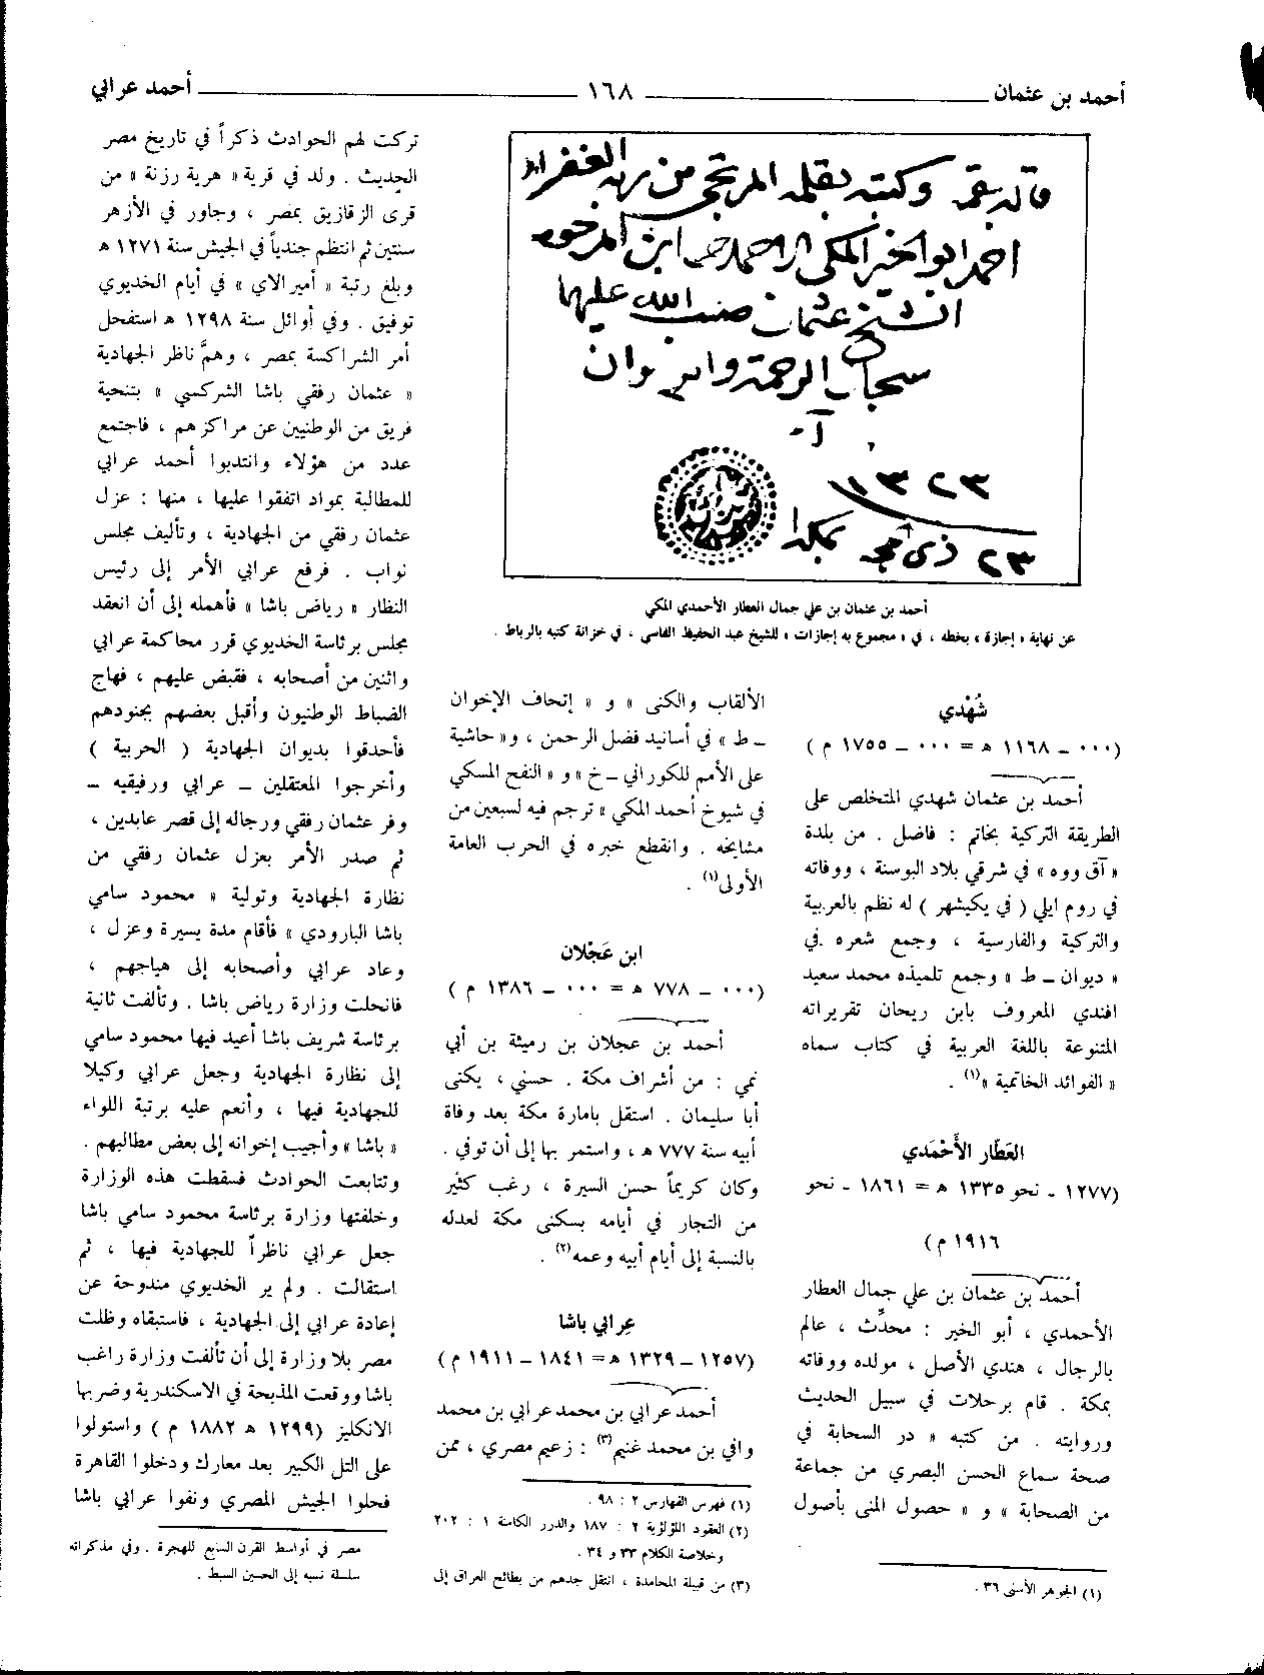 أحمد بن عثمان ــــــ ١٦٨ ــــــ أحمد عرابي
قاله بفمه وكتبه بقلمه المرتجي من ربه الغفران
احمد ابو الخير المكي الاحمدي ابن المرحوم
الشيخ عثمان صب الله عليها
سحاب الرحمة والرضوان
١٣٢٣
٢٣ ذي حجة بمكة
أحمد بن عثمان بن علي جمال العطار الأحمدي المكي
عن نهاية « إجازة » بخطه ، في « مجموع به إجازات » للشيخ عبد الحفيظ الفاسي ، في خزانة كتبه بالرباط .
شُهْدي
(٠٠٠ ــ ١١٦٨ هـ = ٠٠٠ ــ ١٧٥٥ م )
أحمد بن عثمان شهدي المتخلص على
الطريقة التركية بخاتم : فاضل . من بلدة
« آق ووه » في شرقي بلاد البوسنة ، ووفاته
في روم ايلي ( في يكيشهر ) له نظم بالعربية
والتركية والفارسية ، وجمع شعره في
« ديوان ــ ط » وجمع تلميذه محمد سعيد
افندي المعروف بابن ريحان تقريراته
المتنوعة باللغة العربية في كتاب سماه
« الفوائد الخاتمية »(١) .
العَطّار الأَحْمَدي
(١٢٧٧ ـ نحو ١٣٣٥ هـ = ١٨٦١ ـ نحو
١٩١٦ م)
أحمد بن عثمان بن علي جمال العطار
الأحمدي ، أبو الخير : محدِّث ، عالم
بالرجال ، هندي الأصل ، مولده ووفاته
بمكة . قام برحلات في سبيل الحديث
وروايته . من كتبه « در السحابة في
صحة سماع الحسن البصري من جماعة
من الصحابة » و « حصول المنى بأصول
(١) الجوهر الأسنى ٣٦ .
الألقاب والكنى » و « إتحاف الإخوان
ــ ط » في أسانيد فضل الرحمن ، و« حاشية
على الأمم للكوراني ــ خ » و « النفح المسكي
في شيوخ أحمد المكي » ترجم فيه لسبعين من
مشايخه . وانقطع خبره في الحرب العامة
الأولى(١) .
ابن عَجْلان
(٠٠٠ ــ ٧٧٨ هـ = ٠٠٠ ــ ١٣٨٦ م )
أحمد بن عجلان بن رميثة بن أبي
نمي : من أشراف مكة . حسني ، يكنى
أبا سليمان . استقل بامارة مكة بعد وفاة
أبيه سنة ٧٧٧ هـ ، واستمر بها إلى أن توفي .
وكان كريماً حسن السيرة ، رغب كثير
من التجار في أيامه بسكنى مكة لعدله
بالنسبة إلى أيام أبيه وعمه(٢) .
عِرابي باشا
(١٢٥٧ ــ ١٣٢٩ هـ = ١٨٤١ ــ ١٩١١ م )
أحمد عرابي بن محمد عرابي بن محمد
وافي بن محمد غنيم(٣) : زعيم مصري ، ممن
(١) فهرس الفهارس ٢ : ٩٨ .
(٢) العقود اللؤلؤية ٢ : ١٨٧ والدرر الكامنة ١ : ٢٠٢
وخلاصة الكلام ٣٣ و ٣٤ .
(٣) من قبيلة المحامدة ، انتقل جدهم من بطائح العراق إلى
تركت لهم الحوادث ذكراً في تاريخ مصر
الحديث . ولد في قرية « هرية رزنة » من
قرى الزقازيق بمصر ، وجاور في الأزهر
سنتين ثم انتظم جندياً في الجيش سنة ١٢٧١ هـ
وبلغ رتبة « أميرالاي » في أيام الخديوي
توفيق . وفي أوائل سنة ١٢٩٨ هـ استفحل
أمر الشراكسة بمصر ، وهمَّ ناظر الجهادية
« عثمان رفقي باشا الشركسي » بتنحية
فريق من الوطنيين عن مراكزهم ، فاجتمع
عدد من هؤلاء وانتدبوا أحمد عرابي
للمطالبة بمواد اتفقوا عليها ، منها : عزل
عثمان رفقي من الجهادية ، وتأليف مجلس
نواب . فرفع عرابي الأمر إلى رئيس
النظار « رياض باشا » فأهمله إلى أن انعقد
مجلس برئاسة الخديوي قرر محاكمة عرابي
واثنين من أصحابه ، فقبض عليهم ، فهاج
الضباط الوطنيون وأقبل بعضهم بجنودهم
فأحدقوا بديوان الجهادية ( الحربية )
وأخرجوا المعتقلين ــ عرابي ورفيقيه ــ
وفر عثمان رفقي ورجاله إلى قصر عابدين ،
ثم صدر الأمر بعزل عثمان رفقي من
نظارة الجهادية وتولية « محمود سامي
باشا البارودي » فأقام مدة يسيرة وعزل ،
وعاد عرابي وأصحابه إلى هياجهم ،
فانحلت وزارة رياض باشا . وتألفت ثانية
برئاسة شريف باشا أعيد فيها محمود سامي
إلى نظارة الجهادية وجعل عرابي وكيلا
للجهادية فيها ، وأنعم عليه برتبة اللواء
« باشا » وأجيب إخوانه إلى بعض مطالبهم .
وتتابعت الحوادث فسقطت هذه الوزارة
وخلفتها وزارة برئاسة محمود سامي باشا
جعل عرابي ناظراً للجهادية فيها ، ثم
استقالت . ولم ير الخديوي مندوحة عن
إعادة عرابي إلى الجهادية ، فاستبقاه وظلت
مصر بلا وزارة إلى أن تألفت وزارة راغب
باشا ووقعت المذبحة في الاسكندرية وضربها
الانكليز (١٢٩٩ هـ ١٨٨٢ م ) واستولوا
على التل الكبير بعد معارك ودخلوا القاهرة
فحلوا الجيش المصري ونفوا عرابي باشا
مصر في أواسط القرن السابع للهجرة . وفي مذكراته
سلسلة نسبه إلى الحسين السبط .